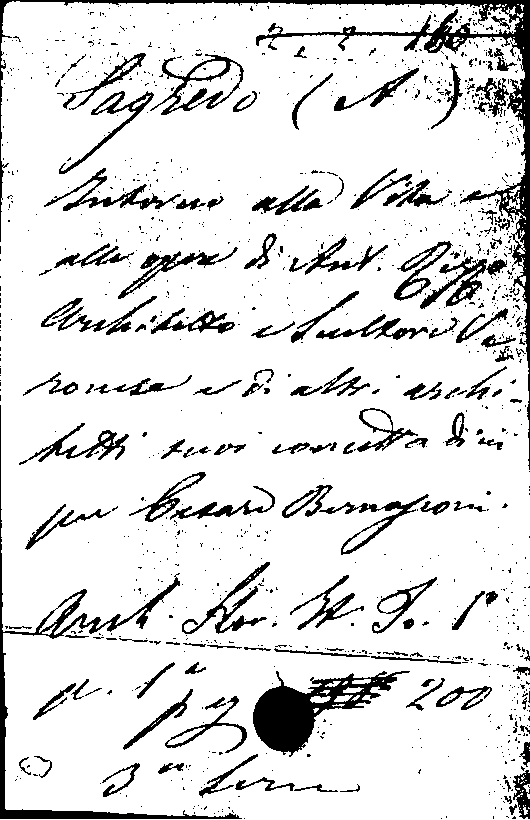 2. 2. 160
Sagredo (A)
Intorno alla Vita e
alle opere di Ant. Rizzo
Architetto e Scultore Ve
ronese e di altri archi-
tetti suoi concittadini
per Cesare Bernasconi.
Arch. Stor. It. To. 1°
p. 1a
pag 200
3a Serie